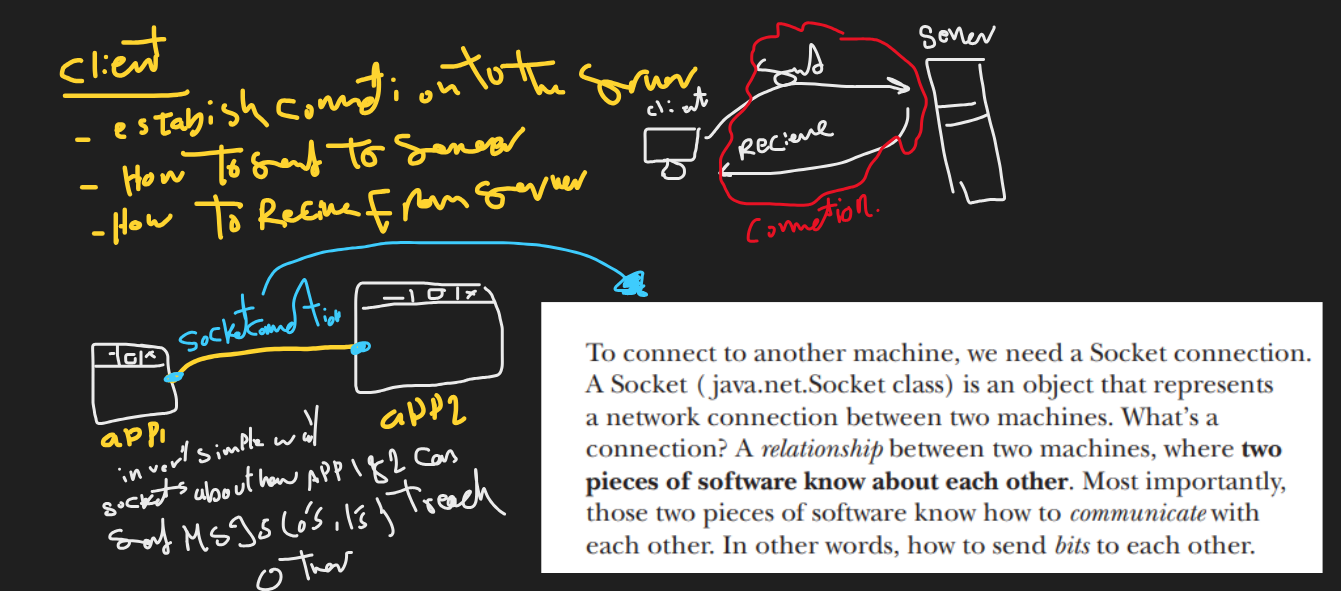 Client
- establish connection to the server
- How To send To Server
- How To Recive From Server
client
Send
Server
Recieve
Connection.
Socket connection
app1
app2
in very simple way
sockets about how APP 1 & 2 can
Send MSgs (0's, 1's) To each
other
To connect to another machine, we need a Socket connection.
A Socket ( java.net.Socket class) is an object that represents
a network connection between two machines. What’s a
connection? A relationship between two machines, where two
pieces of software know about each other. Most importantly,
those two pieces of software know how to communicate with
each other. In other words, how to send bits to each other.